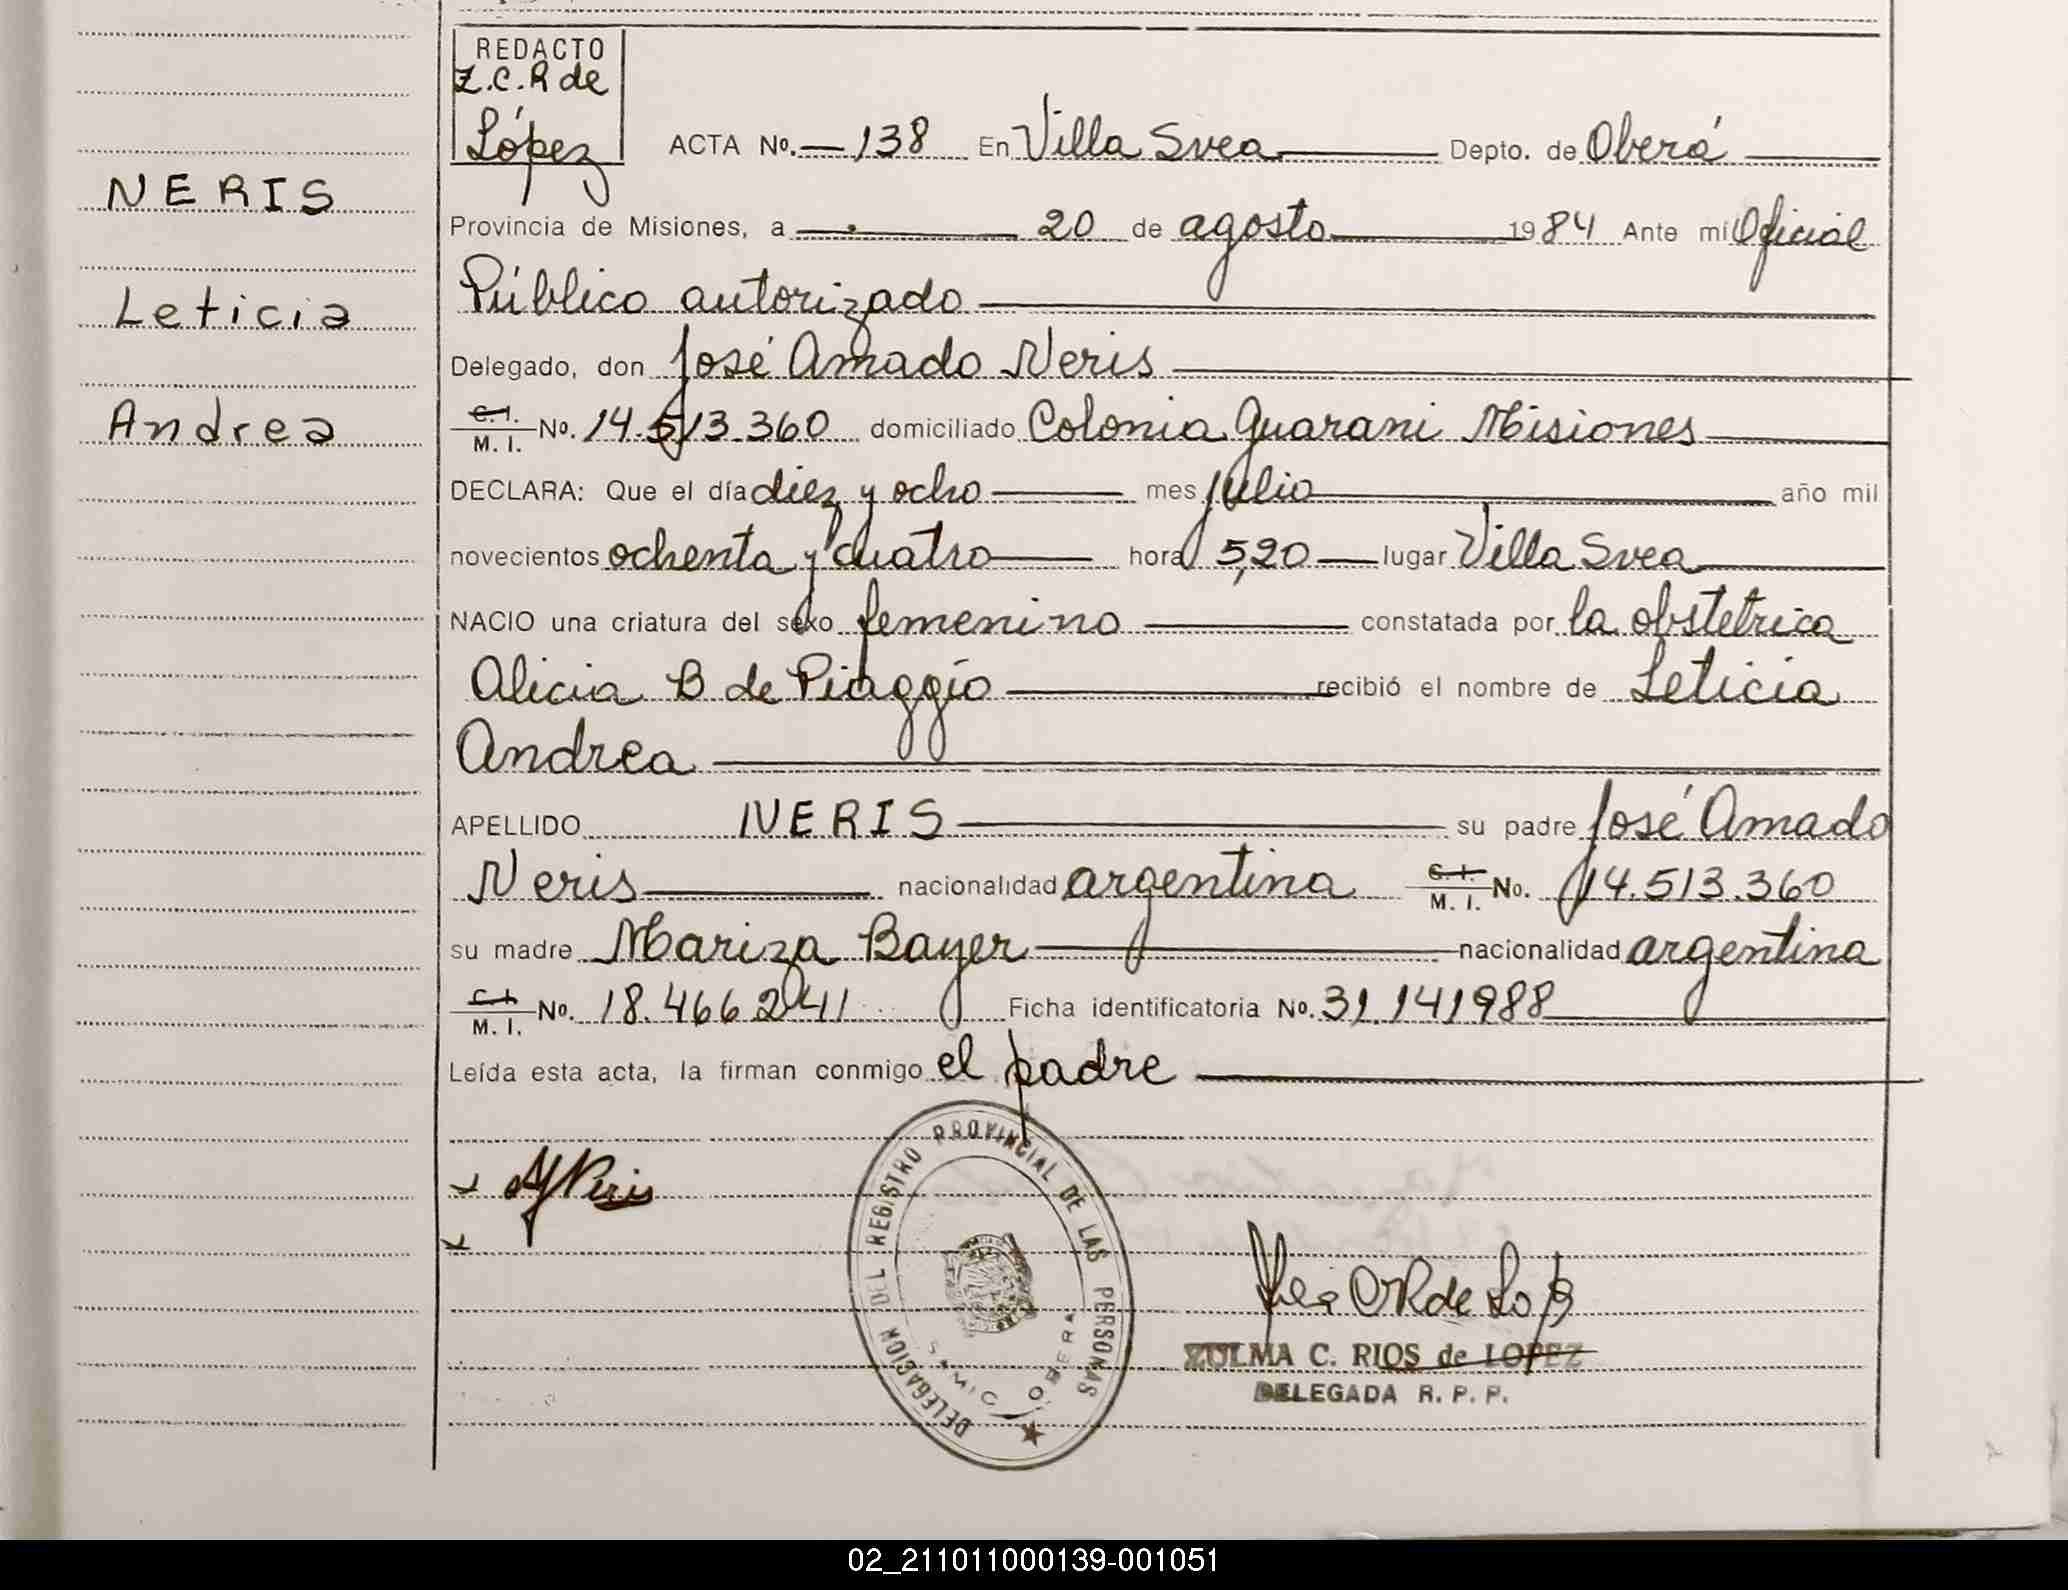 REDACTO
Z.C.R de
López
ACTA No. 138 En Villa Svea Depto. de Oberá
NERIS
Provincia de Misiones, a 20 de agosto 1984 Ante mí Oficial
Leticia
Público autorizado
Delegado, don José Amado Neris
Andrea
C.I. M.I. No. 14.513.360 domiciliado Colonia Guarani Misiones
DECLARA: Que el día diez y ocho mes julio año mil
novecientos ochenta y cuatro hora 5,20 lugar Villa Svea
NACIO una criatura del sexo femenino constatada por la obstetrica
Alicia B de Piaggio recibió el nombre de Leticia
Andrea
APELLIDO NERIS su padre José Amado
Neris nacionalidad argentina C.I. M.I. No. 14.513.360
su madre Mariza Bayer nacionalidad argentina
C.I. M.I. No. 18.466241 Ficha identificatoria No. 31.141988
Leída esta acta, la firman conmigo el padre
DELEGACION DEL REGISTRO PROVINCIAL DE LAS PERSONAS
OBERA
Neris
de López
ZULMA C. RIOS de LOPEZ
DELEGADA R. P. P.
02_211011000139-001051